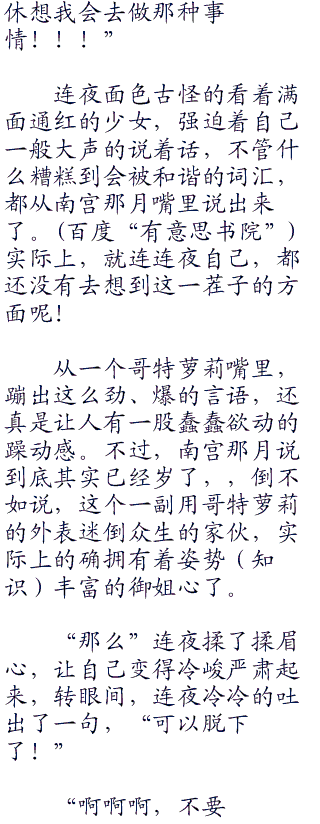 休想我会去做那种事
情！！！”
连夜面色古怪的看着满
面通红的少女，强迫着自己
一般大声的说着话，不管什
么糟糕到会被和谐的词汇，
都从南宫那月嘴里说出来
了。(百度“有意思书院”)
实际上，就连连夜自己，都
还没有去想到这一茬子的方
面呢！
从一个哥特萝莉嘴里，
蹦出这么劲、爆的言语，还
真是让人有一股蠢蠢欲动的
躁动感。不过，南宫那月说
到底其实已经岁了，，倒不
如说，这个一副用哥特萝莉
的外表迷倒众生的家伙，实
际上的确拥有着姿势（知
识）丰富的御姐心了。
“那么”连夜揉了揉眉
心，让自己变得冷峻严肃起
来，转眼间，连夜冷冷的吐
出了一句，“可以脱下
了！”
“啊啊啊，不要